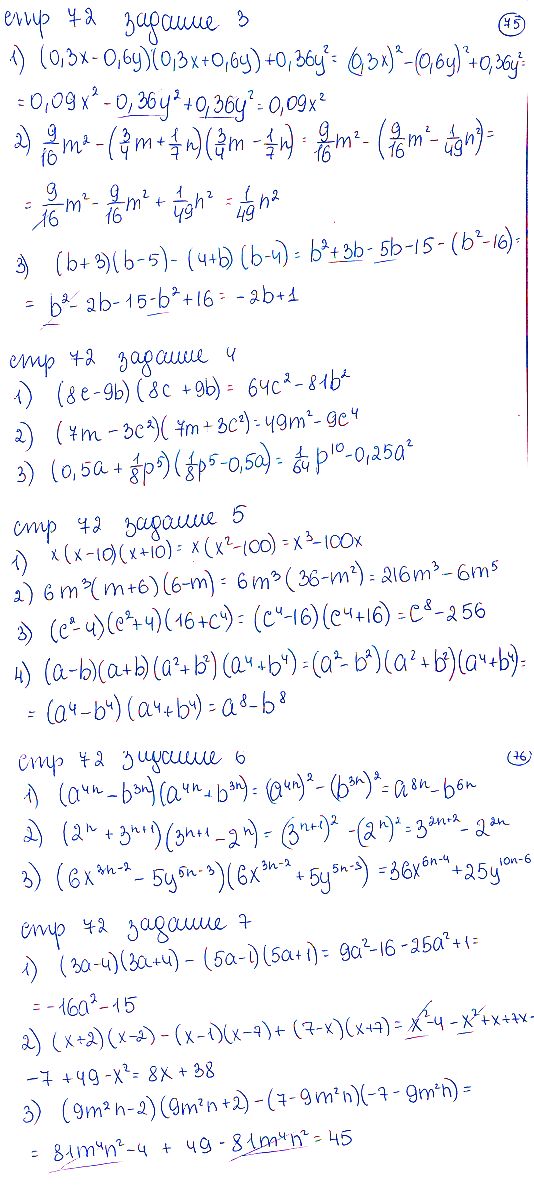 стр 72 задание 3 75
1) (0,3x - 0,6y)(0,3x + 0,6y) + 0,36y² = (0,3x)² - (0,6y)² + 0,36y² =
= 0,09x² - 0,36y² + 0,36y² = 0,09x²
2) 9/16 m² - (3/4 m + 1/7 n)(3/4 m - 1/7 n) = 9/16 m² - (9/16 m² - 1/49 n²) =
= 9/16 m² - 9/16 m² + 1/49 n² = 1/49 n²
3) (b+3)(b-5) - (4+b)(b-4) = b² + 3b - 5b - 15 - (b² - 16) =
= b² - 2b - 15 - b² + 16 = -2b + 1
стр 72 задание 4
1) (8c - 9b)(8c + 9b) = 64c² - 81b²
2) (7m - 3c²)(7m + 3c²) = 49m² - 9c⁴
3) (0,5a + 1/8 p⁵)(1/8 p⁵ - 0,5a) = 1/64 p¹⁰ - 0,25a²
стр 72 задание 5
1) x(x-10)(x+10) = x(x² - 100) = x³ - 100x
2) 6m³(m+6)(6-m) = 6m³(36 - m²) = 216m³ - 6m⁵
3) (c² - 4)(c² + 4)(16 + c⁴) = (c⁴ - 16)(c⁴ + 16) = c⁸ - 256
4) (a-b)(a+b)(a² + b²)(a⁴ + b⁴) = (a² - b²)(a² + b²)(a⁴ + b⁴) =
= (a⁴ - b⁴)(a⁴ + b⁴) = a⁸ - b⁸
стр 72 задание 6 76
1) (a⁴ⁿ - b³ⁿ)(a⁴ⁿ + b³ⁿ) = (a⁴ⁿ)² - (b³ⁿ)² = a⁸ⁿ - b⁶ⁿ
2) (2ⁿ + 3ⁿ⁺¹)(3ⁿ⁺¹ - 2ⁿ) = (3ⁿ⁺¹)² - (2ⁿ)² = 3²ⁿ⁺² - 2²ⁿ
3) (6x³ⁿ⁻² - 5y⁵ⁿ⁻³)(6x³ⁿ⁻² + 5y⁵ⁿ⁻³) = 36x⁶ⁿ⁻⁴ + 25y¹⁰ⁿ⁻⁶
стр 72 задание 7
1) (3a-4)(3a+4) - (5a-1)(5a+1) = 9a² - 16 - 25a² + 1 =
= -16a² - 15
2) (x+2)(x-2) - (x-1)(x-7) + (7-x)(x+7) = x² - 4 - x² + x + 7x -
-7 + 49 - x² = 8x + 38
3) (9m²n - 2)(9m²n + 2) - (7 - 9m²n)(-7 - 9m²n) =
= 81m⁴n² - 4 + 49 - 81m⁴n² = 45